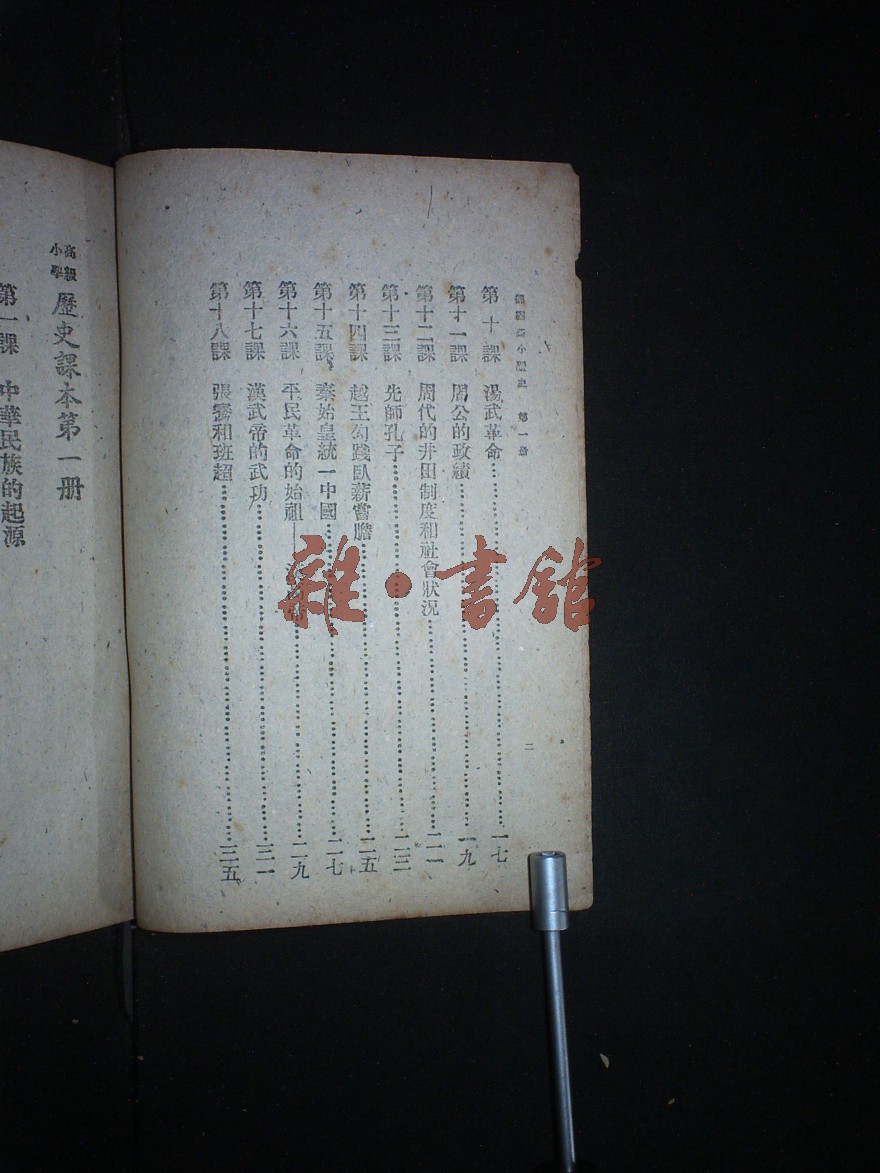 高小歷史 第一册
第十課 湯武革命 一七
第十一課 周公的政績 一九
第十二課 周代的井田制度和社會狀况 二一
第十三課 先師孔子 二三
第十四課 越王勾踐臥薪嘗膽 二五
第十五課 秦始皇統一中國 二七
第十六課 平民革命的始祖 二九
第十七課 漢武帝的武功 三一
第十八課 張騫和班超 三五
二
高級小學 歷史課本第一册
第一課 中華民族的起源
雜·書館